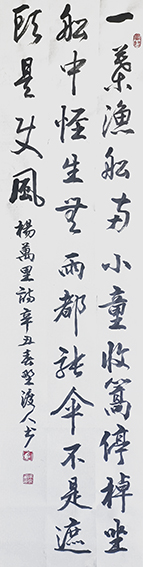 一葉漁船两小童收篙停棹坐
船中怪生無雨都張傘不是遮
頭是使風
楊萬里詩辛丑春渡人书